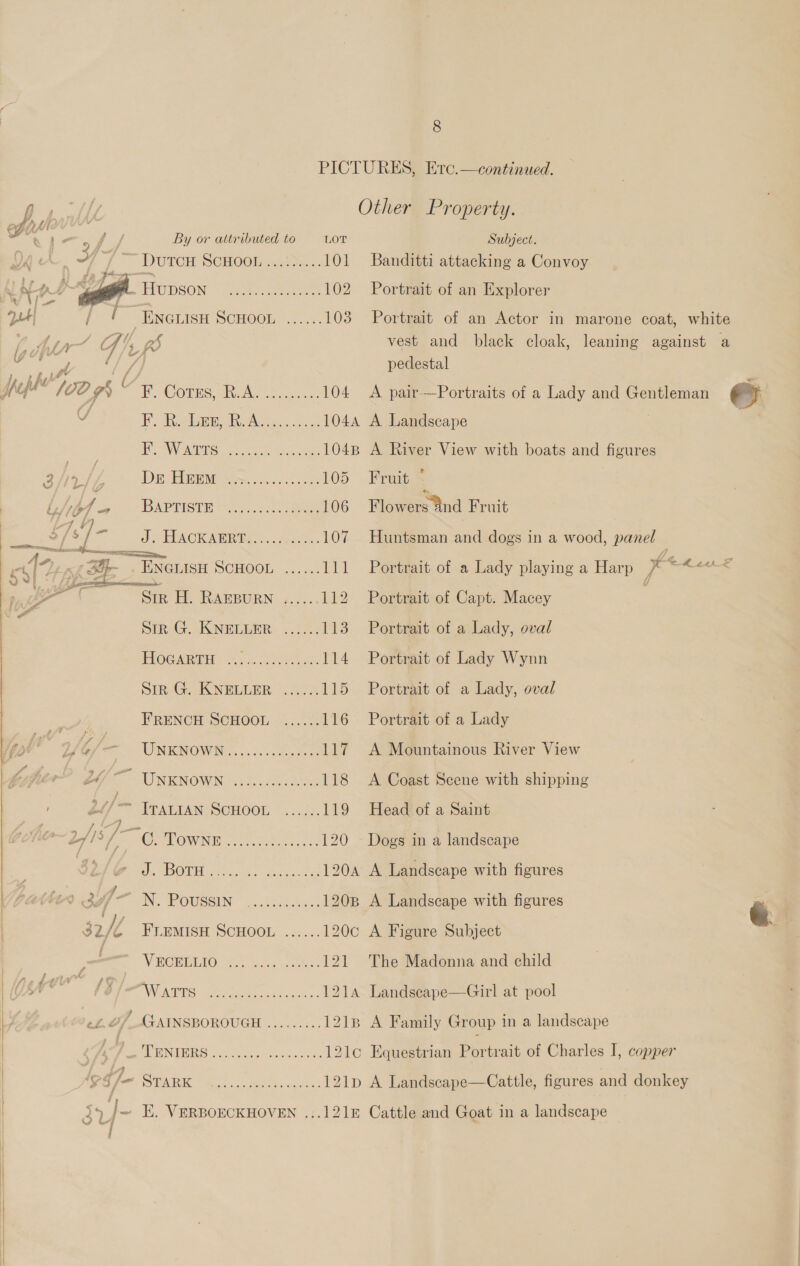 8
PICTURES, ETC.—continued.
Other Property.
By or attributed to LOT Subject.
DUTCH SCHOOL ......... 101 Banditti attacking a Convoy
HUDSON ............... 102 Portrait of an Explorer
ENGLISH SCHOOL ...... 103 Portrait of an Actor in marone coat, white
vest and black cloak, leaning against a
pedestal
F. COTES, R.A. .......... 104 A pair—Portraits of a Lady and Gentleman
F. R. LEE, R.A. ......... 104A A Landscape
F. WATTS ............... 104B A River View with boats and figures
DE HEEM ............... 105 Fruit
BAPTISTE ............... 106 Flowers and Fruit
J. HACKAERT............ 107 Huntsman and dogs in a wood, panel
ENGLISH SCHOOL ...... 111 Portrait of a Lady playing a Harp
SIR H. RAEBURN ...... 112 Portrait of Capt. Macey
SIR G. KNELLER ...... 113 Portrait of a Lady, oval
HOGARTH ............... 114 Portrait of Lady Wynn
SIR G. KNELLER ...... 115 Portrait of a Lady, oval
FRENCH SCHOOL ...... 116 Portrait of a Lady
UNKNOWN............... 117 A Mountainous River View
UNKNOWN ............... 118 A Coast Scene with shipping
ITALIAN SCHOOL ...... 119 Head of a Saint
C. TOWNE ............... 120 Dogs in a landscape
J. BOTH ............... 120A A Landscape with figures
N. POUSSIN ............ 120B A Landscape with figures
32/6 FLEMISH SCHOOL ...... 120C A Figure Subject
VECELLIO ............... 121 The Madonna and child
WATTS ............... 121A Landscape—Girl at pool
GAINSBOROUGH ......... 121B A Family Group in a landscape
TENIERS ............... 121C Equestrian Portrait of Charles I, copper
STARK ............... 121D A Landscape—Cattle, figures and donkey
E. VERBOECKHOVEN ...121E Cattle and Goat in a landscape